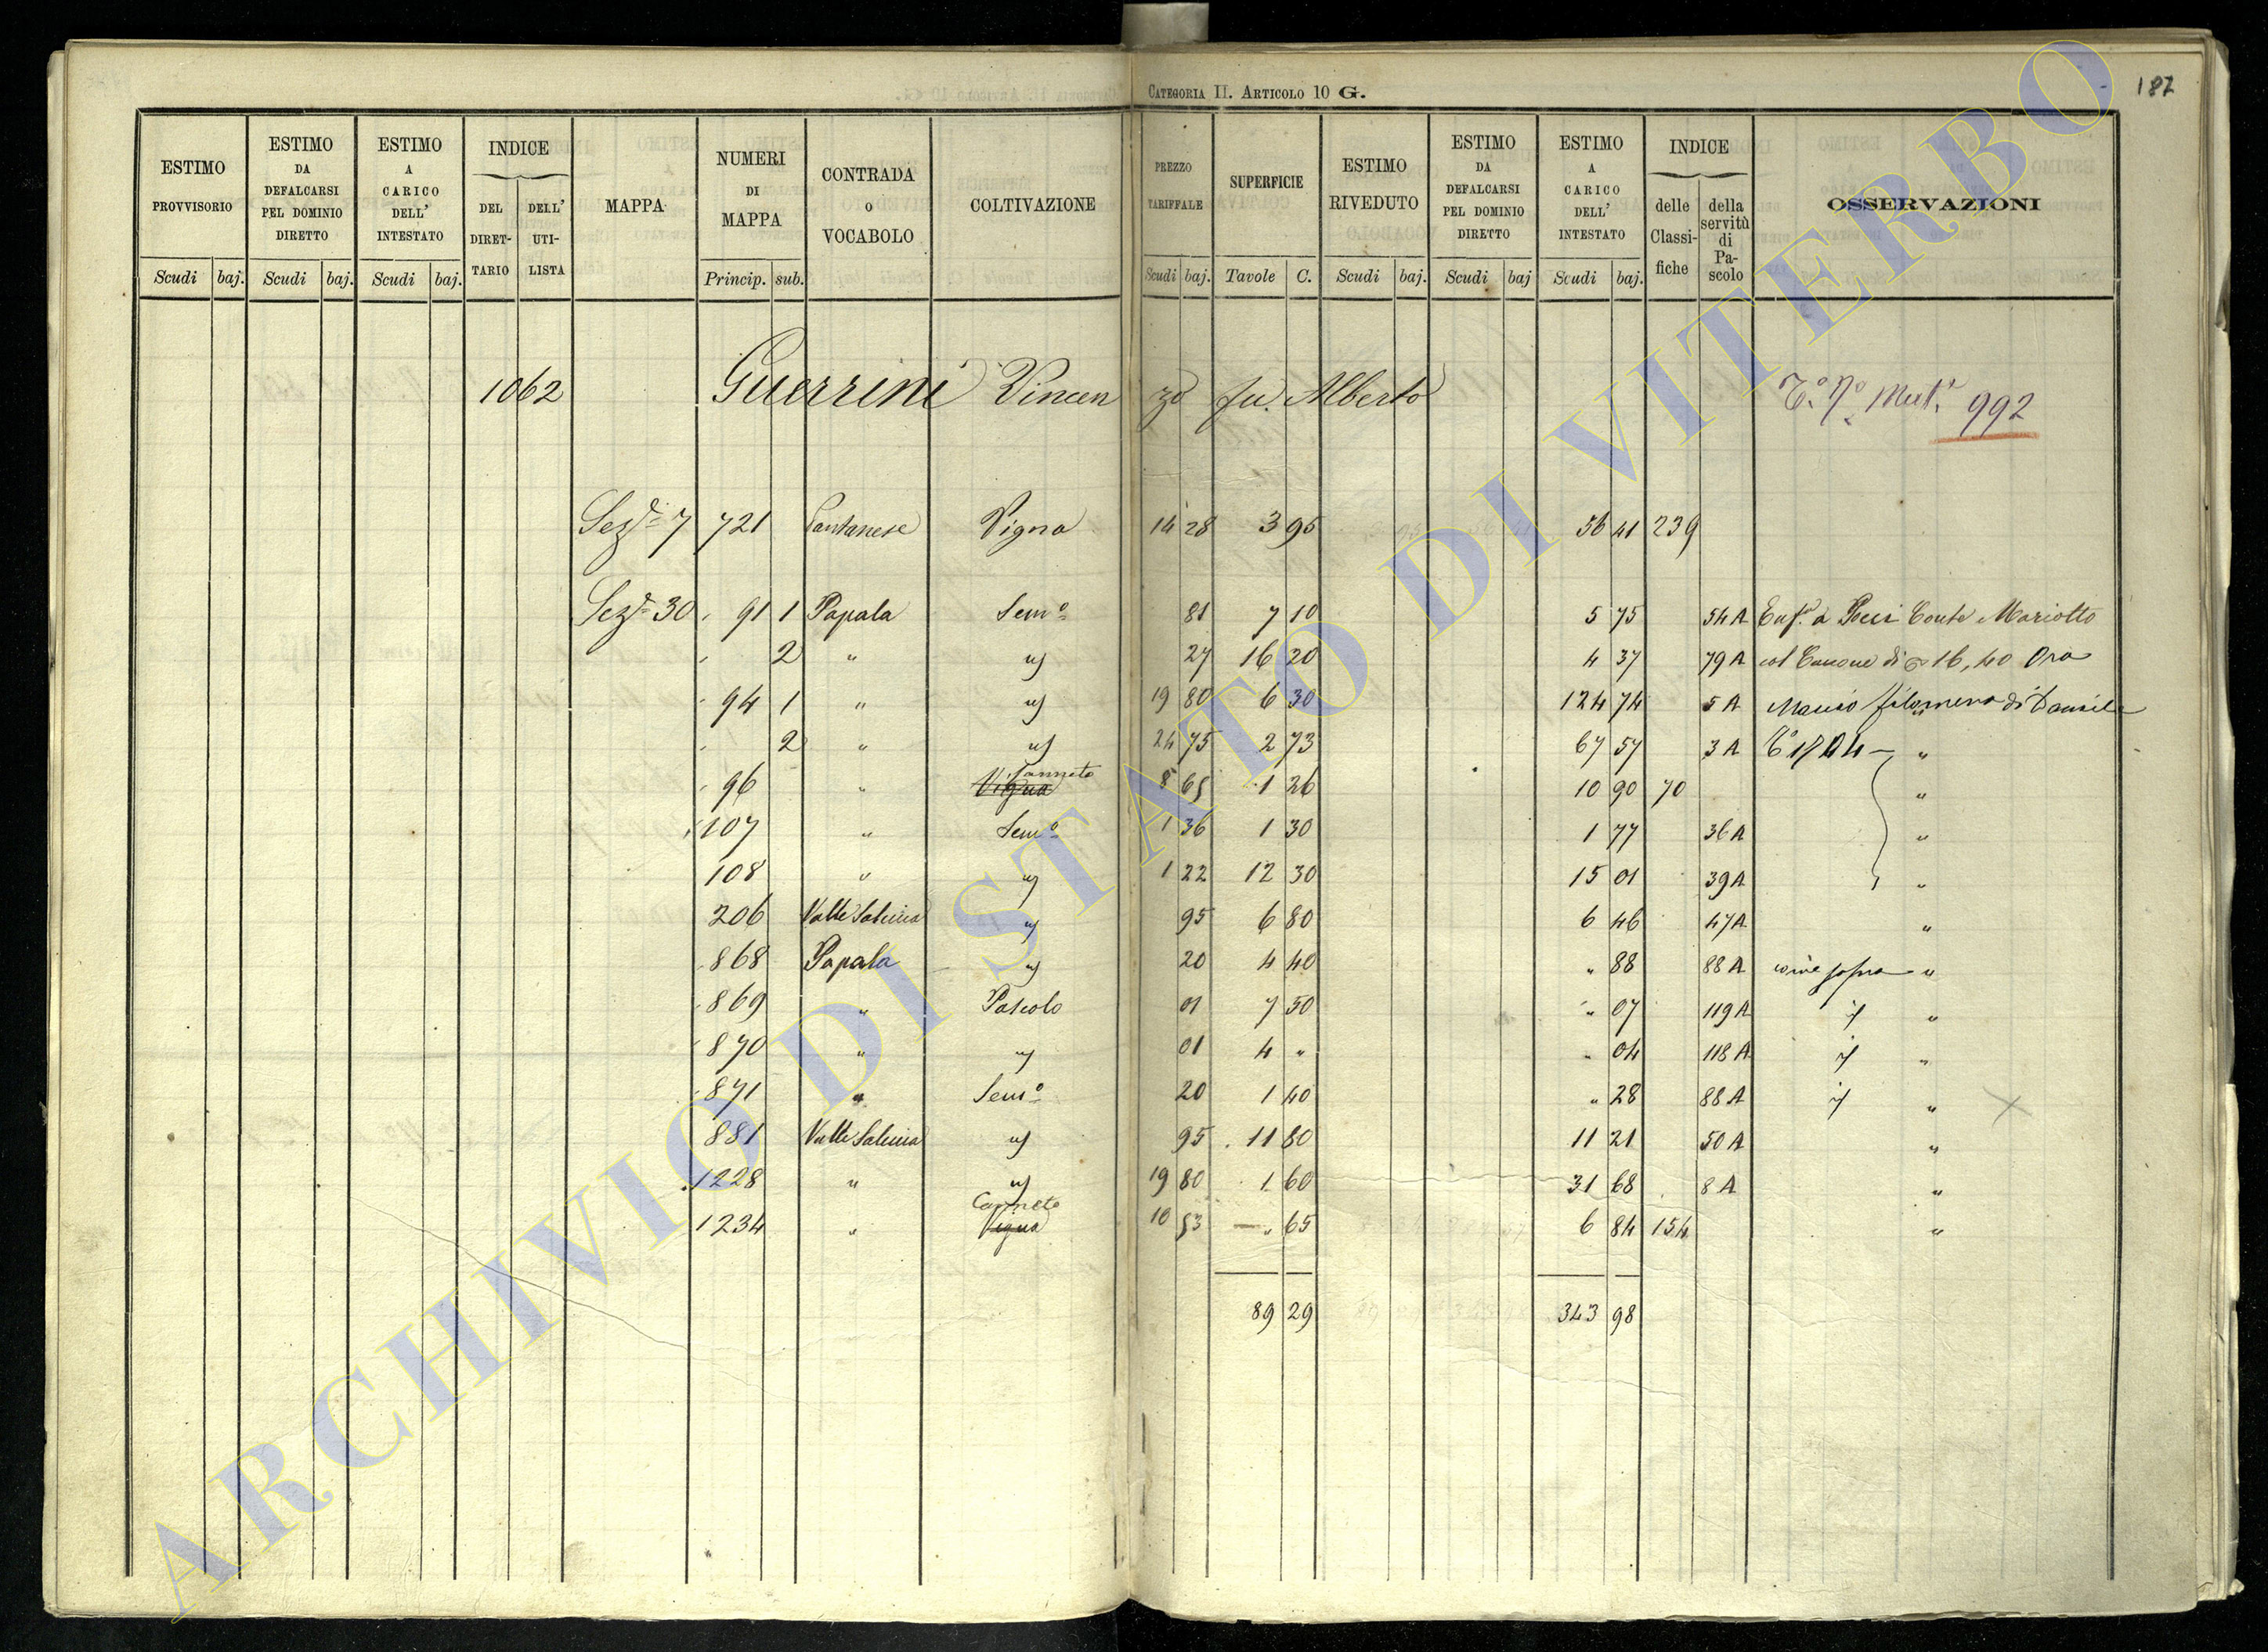 CATEGORIA II. ARTICOLO 10 G.
187
ESTIMO PROVVISORIO Scudi baj.
ESTIMO DA DEFALCARSI PEL DOMINIO DIRETTO Scudi baj.
ESTIMO A CARICO DELL' INTESTATO Scudi baj.
INDICE DEL DIRETTARIO DELL' UTILISTA
MAPPA
NUMERI DI MAPPA Princip. sub.
CONTRADA O VOCABOLO
COLTIVAZIONE
PREZZO TARIFFALE Scudi baj.
SUPERFICIE Tavole C.
ESTIMO RIVEDUTO Scudi baj.
ESTIMO DA DEFALCARSI PEL DOMINIO DIRETTO Scudi baj
ESTIMO A CARICO DELL' INTESTATO Scudi baj.
INDICE delle Classifiche della servitù di Pascolo
OSSERVAZIONI
1062 Guerrini Vincenzo fu Alberto 992
Sez.e 7 721 Pantanese Vigna 14 28 3 95 56 41 239
Sez.e 30 91 1 Papala Sem.o 81 7 10 5 75 54 A Enf.a a Pocci Conte Mariotto
2 " id 27 16 20 4 37 79 A col Canone di 16,40 Ora
94 1 " id 19 80 6 30 124 74 5 A Filomena di
2 " id 24 75 2 73 67 57 3 A "
96 " Vigna Canneto 8 65 1 26 10 90 70 "
107 " Sem.o 1 36 1 30 1 77 36 A "
108 " id 1 22 12 30 15 01 39 A "
206 Valle id 95 6 80 6 46 47 A "
868 Papala id 20 4 40 " 88 88 A come sopra "
869 " Pascolo 01 7 50 " 07 119 A id "
870 " id 01 4 " " 04 118 A id "
871 " Sem.o 20 1 40 " 28 88 A id "
881 Valle id 95 11 80 11 21 50 A "
1228 " id 19 80 1 60 31 68 8 A "
1234 " Vigna Canneto 10 53 — " 65 6 84 154 "
89 29 343 98
ARCHIVIO DI STATO DI VITERBO